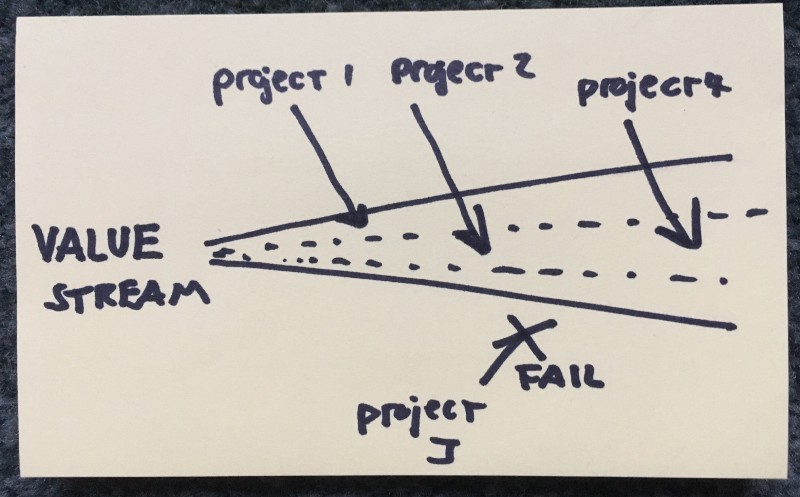 project 1
project 2
project 4
VALUE
STREAM
FAIL
project